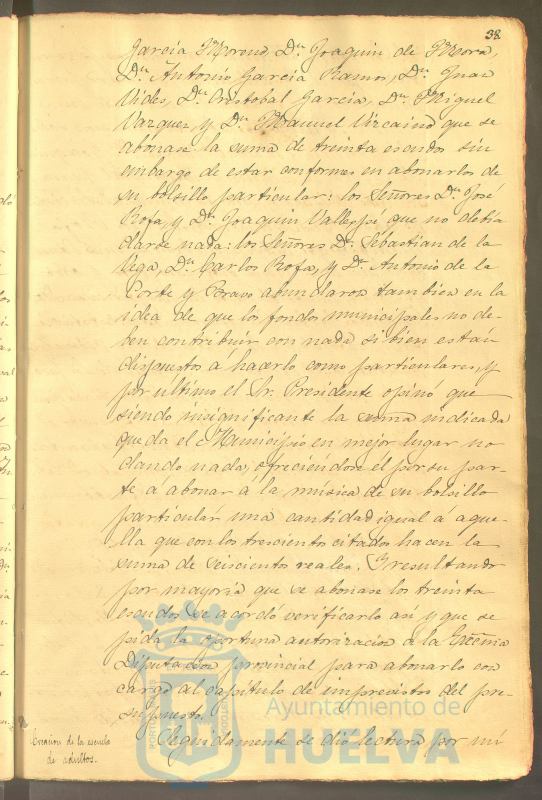 38
García Moreno, Dn. Joaquin de Mora,
Dn. Antonio García Ramos, Dn. Juan
Vides, Dn. Cristobal García, Dn. Miguel
Vazquez, y Dn. Manuel Vizcaino que se
abonase la suma de treinta escudos sin
embargo de estar conformes en abonarlos de
su bolsillo particular: los Señores Dn. José
Rofa y Dn. Joaquin Vallespí que no debia
darse nada: los Señores Dn. Sebastian de la
Vega, Dn. Carlos Rofa, y Dn. Antonio de la
Corte y Bravo abundaron tambien en la
idea de que los fondos municipales no de-
ben contribuir con nada si bien están
dispuestos á hacerlo como particulares, y
por ultimo el Sr. Presidente opinó que
siendo insignificante la suma indicada
queda el Municipio en mejor lugar no
dando nada, ofreciendose él por su par-
te á abonar á la música de su bolsillo
particular una cantidad igual á aque-
lla que con los trescientos citados hacen la
suma de seiscientos reales. Y resultando
por mayoría que se abonase los treinta
escudos se acordó verificarlo así y que se
pida la oportuna autorizacion a la Excma
Diputacion provincial para abonarlo con
cargo al capítulo de imprevistos del pre-
supuesto.
Creacion de la escuela
de adultos.
Seguidamente se dió lectura por mí
Ayuntamiento de
HUELVA